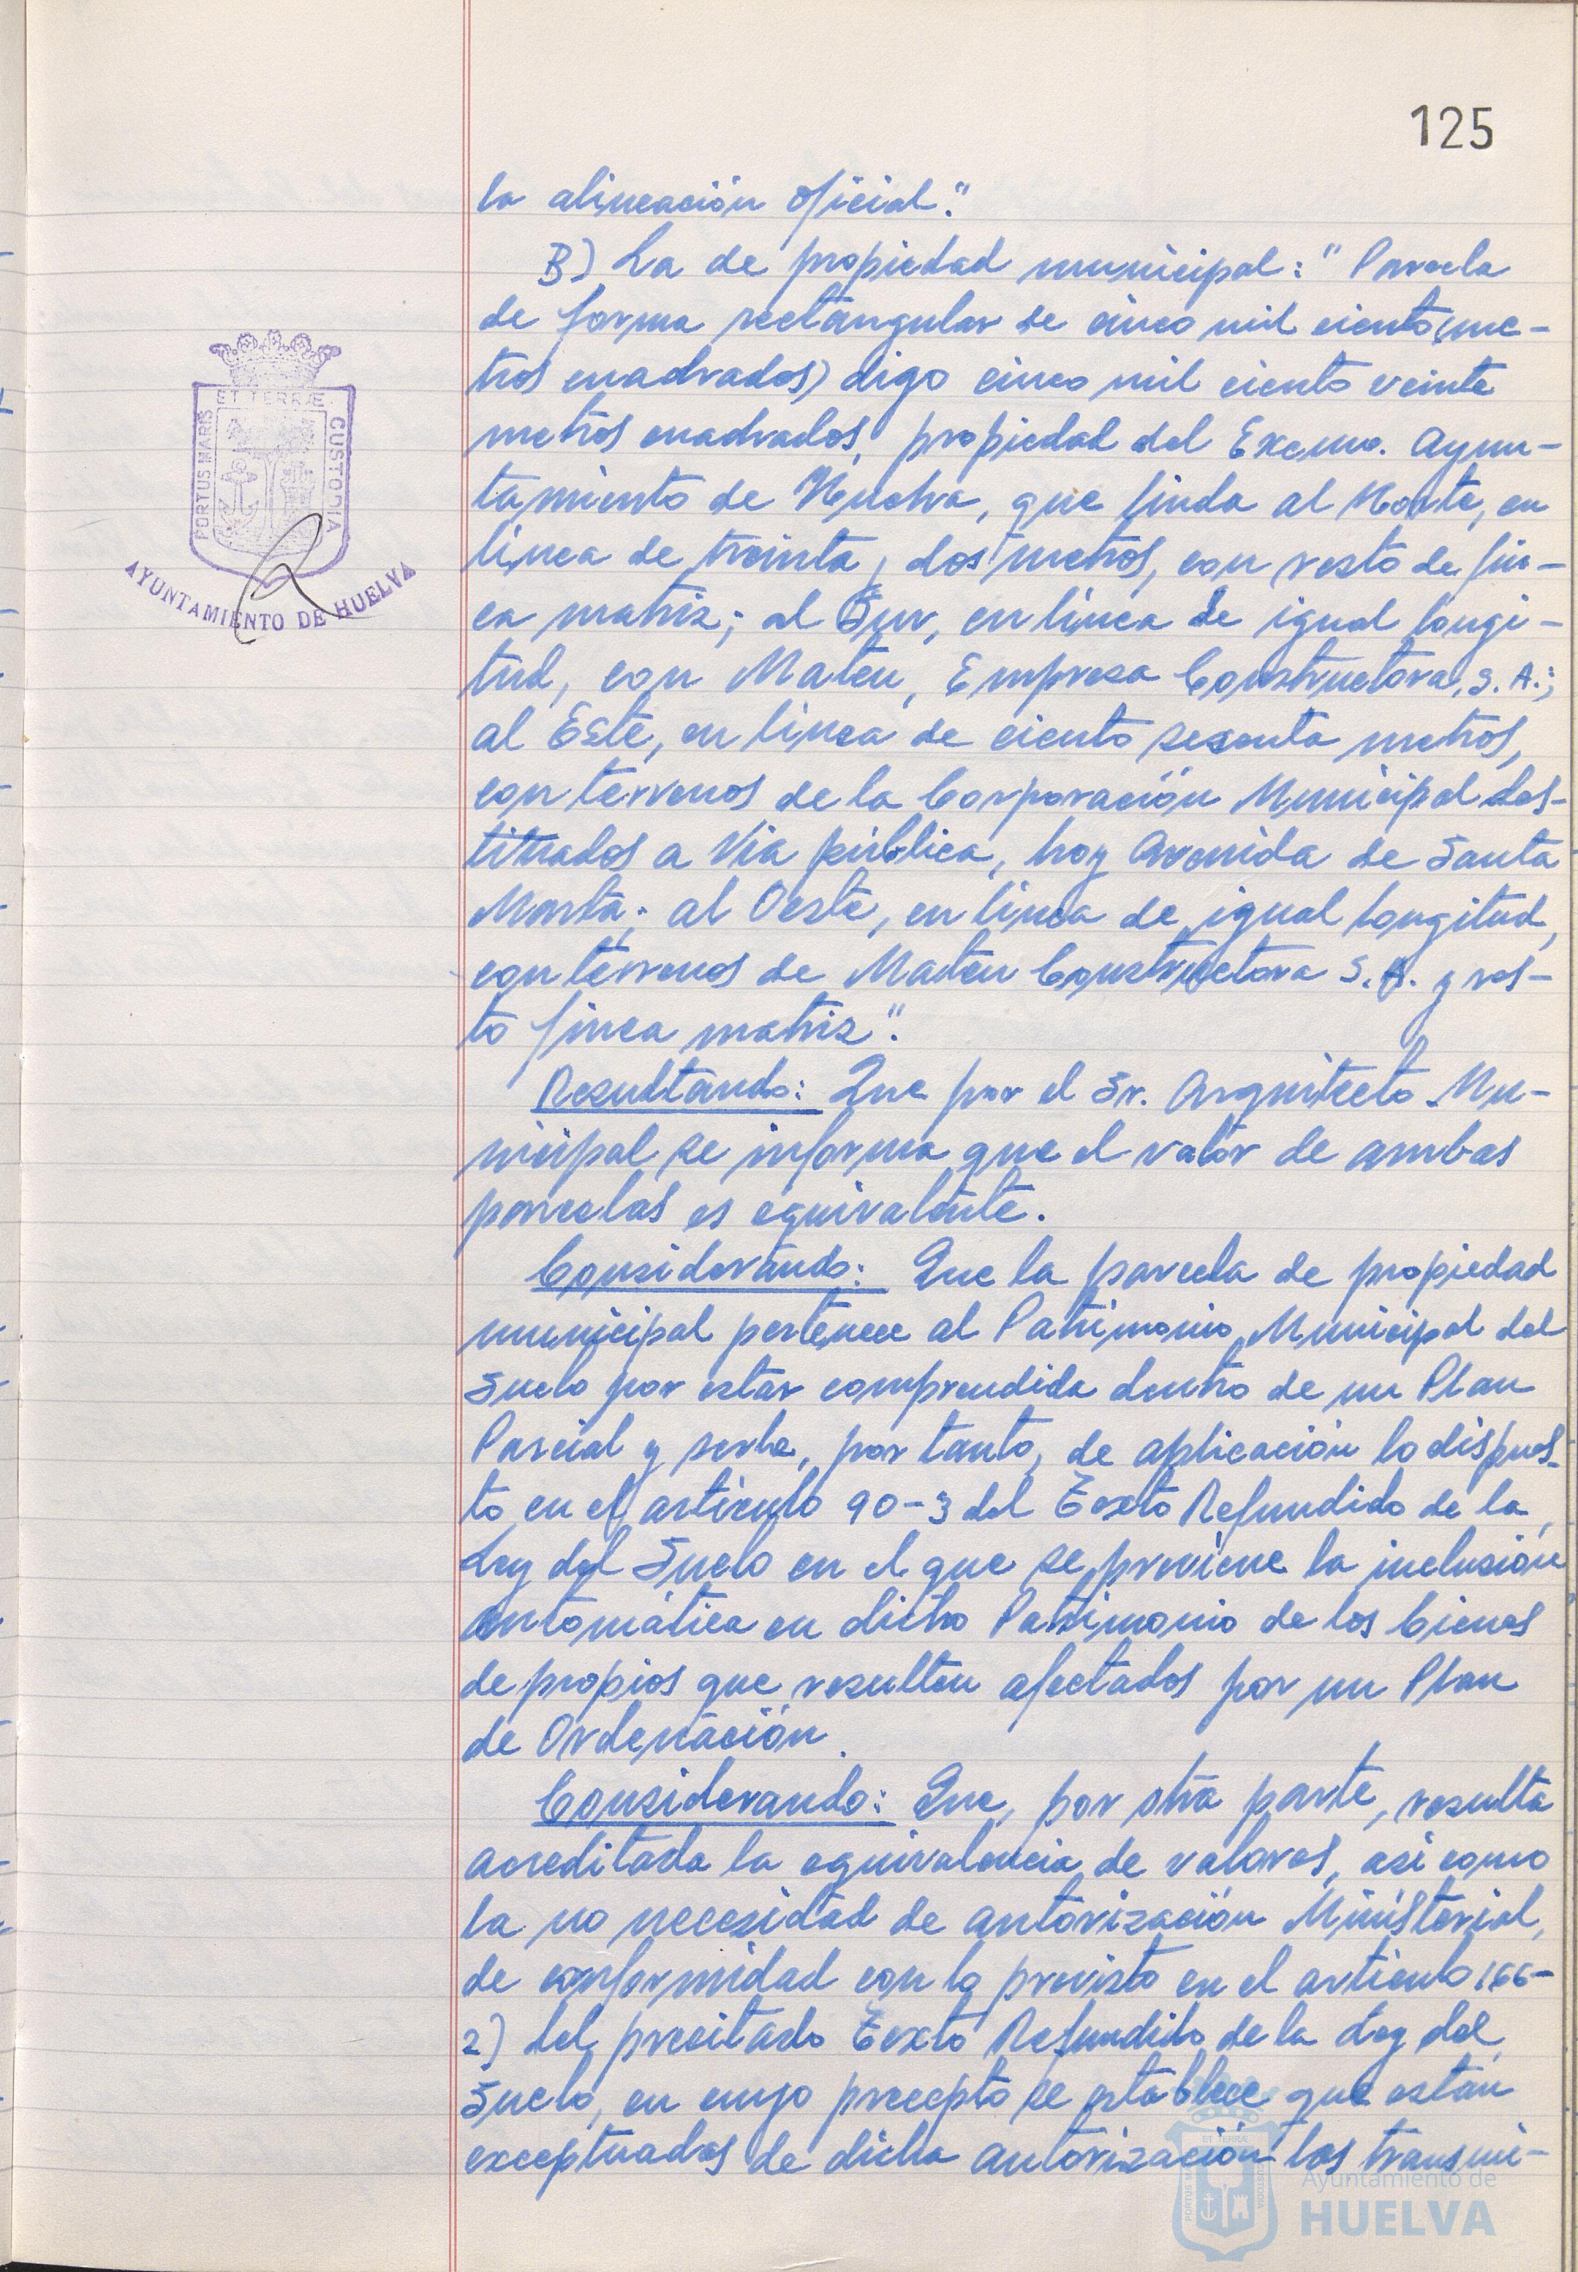 125
la alineación oficial".
B) La de propiedad municipal: "Parcela
de forma rectangular de cinco mil ciento (me-
tros cuadrados) digo cinco mil ciento veinte
metros cuadrados, propiedad del Excmo. Ayun-
tamiento de Huelva, que linda al Norte, en
línea de treinta y dos metros, con resto de fin-
ca matriz; al Sur, en línea de igual longi-
tud, con Mateu, Empresa Constructora, S.A.;
al Este, en línea de ciento sesenta metros,
con terrenos de la Corporación Municipal des-
titnados a Vía pública, hoy Avenida de Santa
Marta; al Oeste, en línea de igual longitud,
con terrenos de Mateu Constructora S.A. y res-
to finca matriz".
Resultando: Que por el Sr. Arquitecto Mu-
nicipal se informa que el valor de ambas
parcelas es equivalente.
Considerando: Que la parcela de propiedad
municipal pertenece al Patrimonio Municipal del
Suelo por estar comprendida dentro de un Plan
Parcial y serle, por tanto, de aplicación lo dispues-
to en el artículo 90-3 del Texto Refundido de la
Ley del Suelo en el que se previene la inclusión
automática en dicho Patrimonio de los bienes
de propios que resulten afectados por un Plan
de Ordenación.
Considerando: Que, por otra parte, resulta
acreditada la equivalencia de valores, así como
la no necesidad de autorización Ministerial,
de conformidad con lo previsto en el artículo 166-
2) del precitado Texto Refundido de la Ley del
Suelo, en cuyo precepto se establece que están
exceptuadas de dicha autorización las transmi-
PORTUS MARIS
ET TERRÆ
CUSTODIA
AYUNTAMIENTO DE HUELVA
Ayuntamiento de
HUELVA